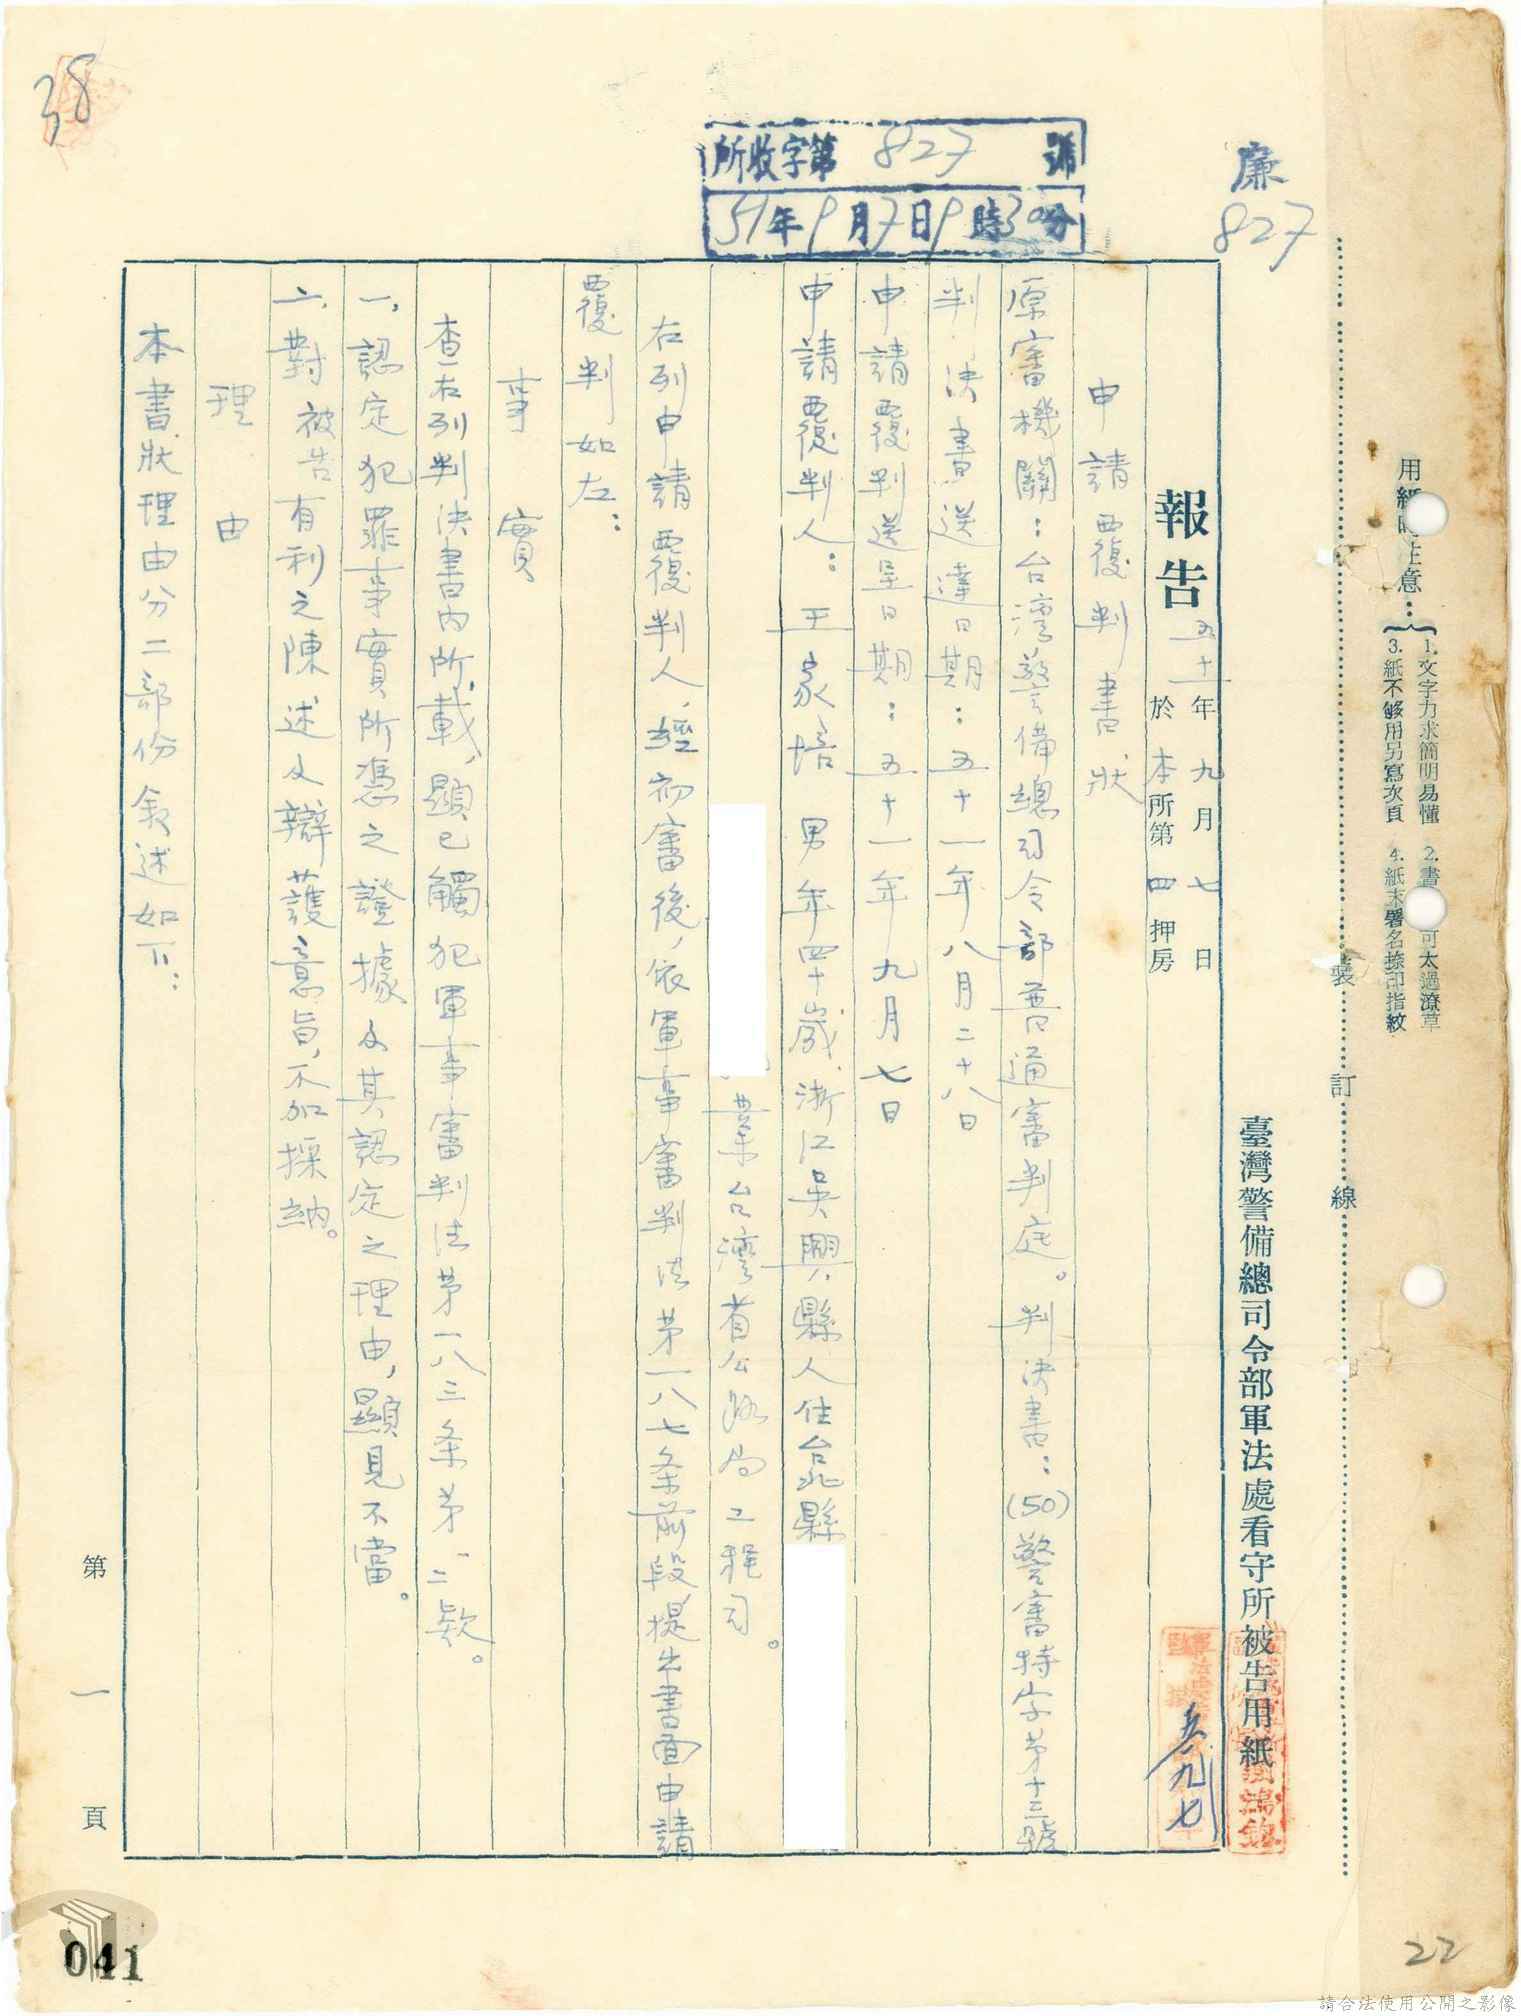 用紙時注意：
1. 文字力求簡明易懂
2. 書 可太過潦草
3. 紙不够用另寫次頁
4. 紙末署名捺印指紋
裝 訂 線
廉
827
38
所收字第 827 號
51年9月7日9時30分
臺灣警備總司令部軍法處看守所被告用紙
報告
五十 年 九 月 七 日
於 本 所第 四 押房
五一九七
申請覆判書狀
原審機關：台灣警備總司令部普通審判庭。判決書：(50)警審特字苐十三號
判決書送達日期：五十一年八月二十八日
申請覆判送呈日期：五十一年九月七日
申請覆判人：王家培 男 年四十歲 浙江吳興縣人 住台北縣
業台灣省公路局工程司。
右列申請覆判人，經初審後，依軍事審判法苐一八七条前段，提出書面申請
覆判如左：
事實
查右列判決書內所載，顯已觸犯軍事審判法苐一八三条苐一、二欵。
一，認定犯罪事實所憑之證據及其認定之理由，顯見不當。
二，對被告有利之陳述及辯護意旨，不加採納。
理由
本書狀理由分二部份敘述如下：
第 一 頁
041
22
請合法使用公開之影像